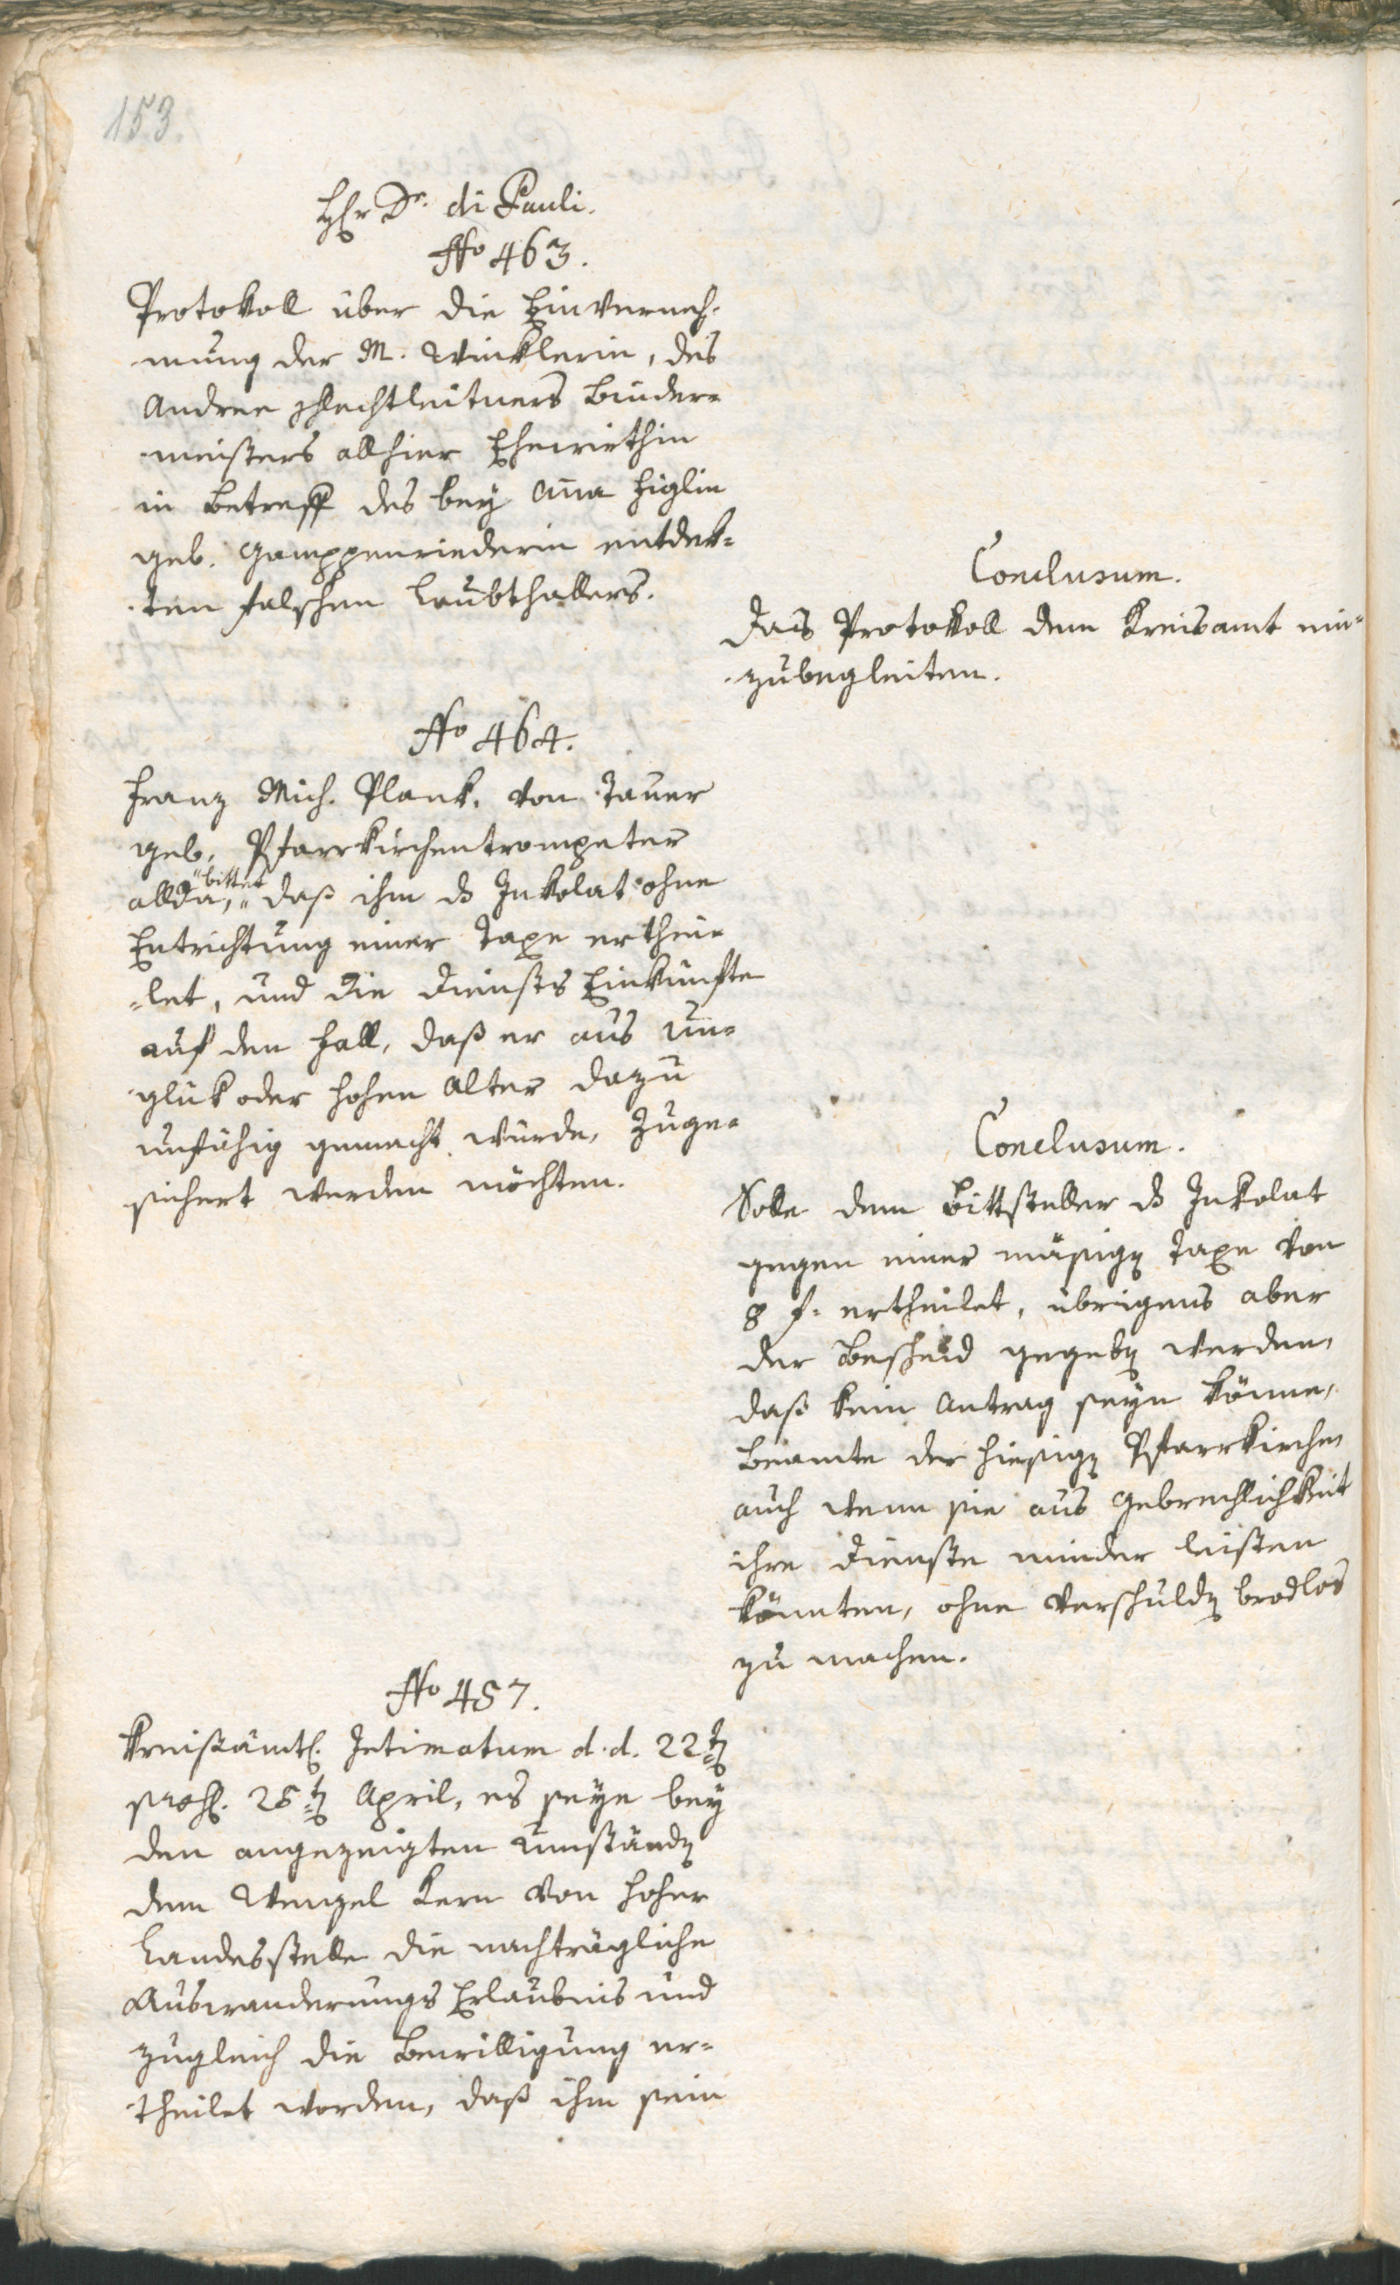 153.
Hr Dr. di Pauli.
No 463.
Protokoll über die Einverneh-
mung der M. Winklerin, des
Andree Schlechtleitners Binder-
meisters allhier Ehewirthin
in Betreff des bey Anna Higlin
geb. Gamppenriederin entdek-
ten falschen Laubthallers.
Conclusum.
Das Protokoll dem Kreisamt ein-
zubegleiten.
No 464.
Franz Mich. Plank, von Tauer
geb. Pfarrkirchentrompeter
allda, bittet daß ihm ds Inkolat ohne
Entrichtung einer Taxe erthei-
let, und die Diensts Einkünfte
auf den Fall, daß er aus Un-
glük oder hohen Alter dazu
unfähig gemacht würde, zuge-
sichert werden möchten.
Conclusum.
Solle dem Bittsteller ds Inkolat
gegen einer mäßigen Taxe von
8 f. ertheilet, übrigens aber
der Bescheid gegeben werden,
daß kein Antrag seyn könne,
Beamte der hiesigen Pfarrkirchen
auch wenn sie aus Gebrechlichkeit
ihre Dienste minder leisten
könnten, ohne Verschulden brodlos
zu machen.
No 457.
Kreisämtl. Intimatum d. d. 22ten
praes. 25ten April, es seye bey
den angezeigten Umständen
dem Wenzel Kern von hoher
Landesstelle die nachträgliche
Auswanderungs Erlaubnis und
zugleich die Bewilligung er-
theilet worden, daß ihm sein